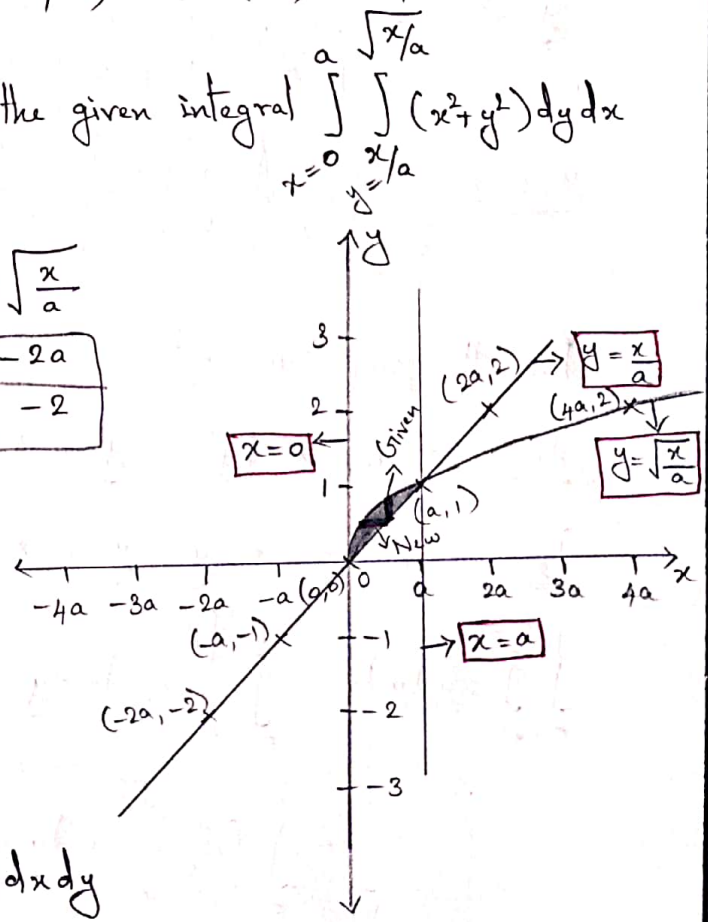 the given integral ∫_{x=0}^{a} ∫_{y=x/a}^{√(x/a)} (x²+y²) dy dx
√(x/a)
-2a
-2
y
3
2
1
(2a,2)
y = x/a
(4a,2)
y = √(x/a)
x=0
Given
(a,1)
New
-4a -3a -2a -a (0,0) 0 a 2a 3a 4a x
(-a,-1)
-1
x=a
(-2a,-2)
-2
-3
dx dy